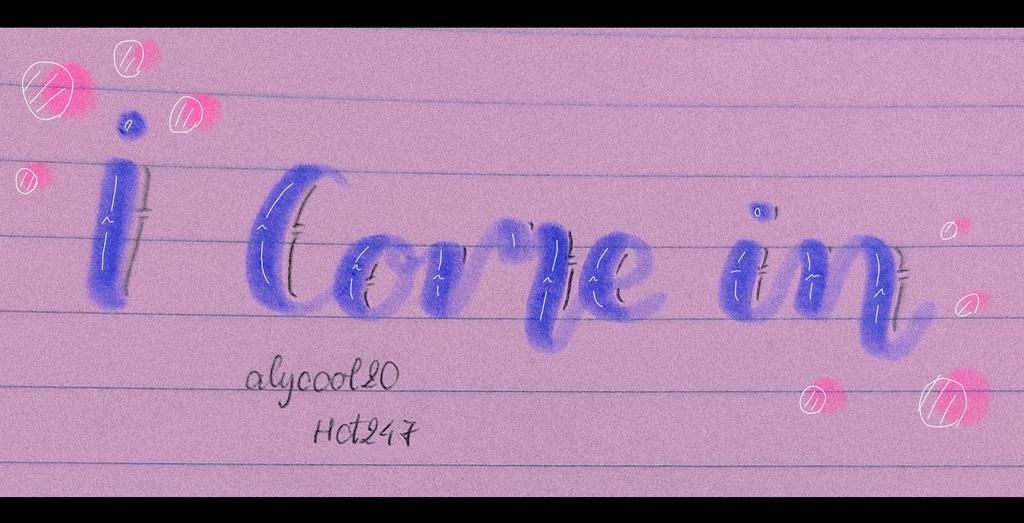 i Come in
alycool20
Hot247